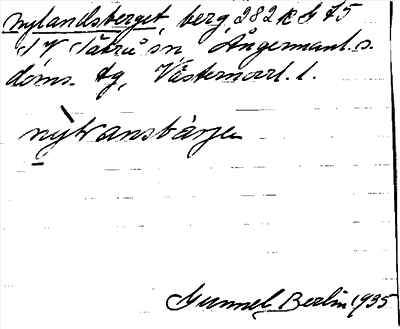 Nylandsberget, berg, 282 k G 75
i V Tåtrå sn Ångermanl. s.
doms. tg, Västernorrl. l.
nỳtransbárjen
Gunnel Berlin 1935